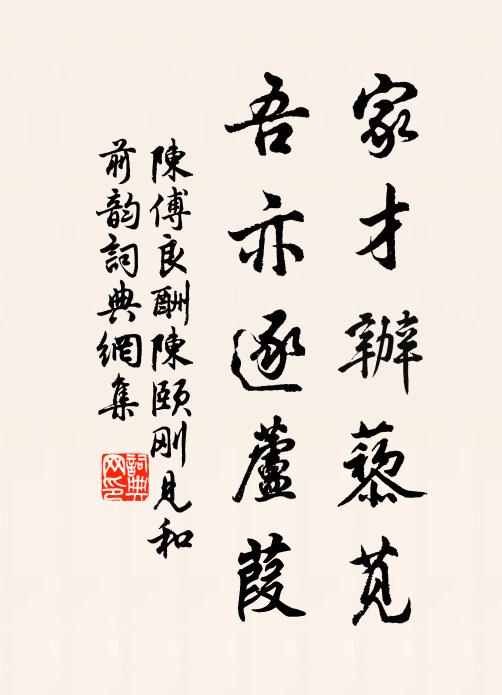 家才辦藜莧
吾亦逐蘆葭
陳傅良酬陳頤剛見和
前韵詞典網集
詞典网印